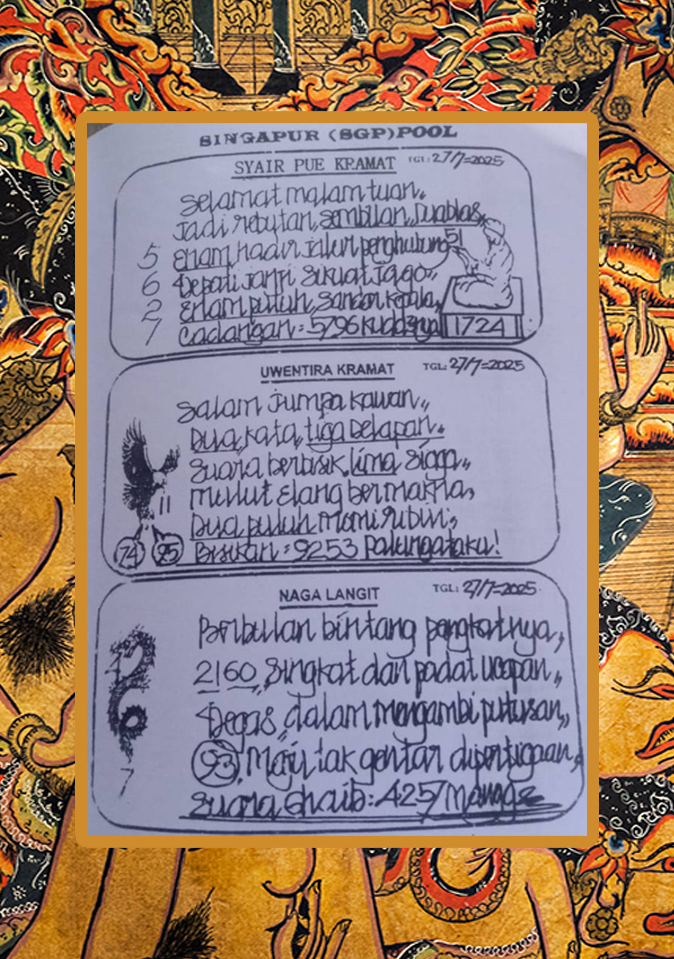 SINGAPUR (SGP) POOL
SYAIR PUE KRAMAT TGL: 27/7=2025
Selamat malam tuan,,
Jadi rebutan, sembilan, Duablas,
5 Enam hadir jalur penghubung 51
6 Depati janji sikuat Jago,,
2 Enam puluh, Sandar kepala,
7 Cadangan: 5796 kudanya 1724
UWENTIRA KRAMAT TGL: 27/7=2025
Salam Jumpa kawan,,
Dua, kata, tiga Delapan.
Suara berbisik, lima Siaga,,
Mulut Elang bermakna,
Dua puluh momi rubin,
74 95 Bisikan: 9253 !
NAGA LANGIT TGL: 27/7=2025
bintang pangkatnya,
2160, Singkat dan padat ucapan,,
Degas, dalam mengambi putusan,,
93, Maju tak gentar dipertigaan,
7
Suara Ghaib: 4257